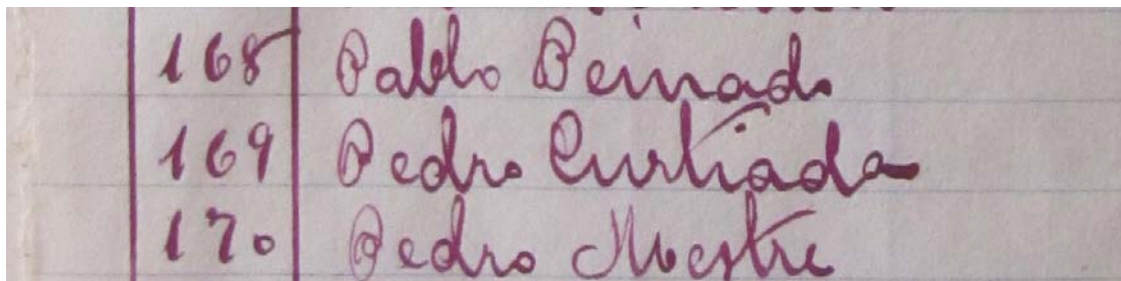 168 Pablo Peinado
169 Pedro Curtiada
170 Pedro Mestre